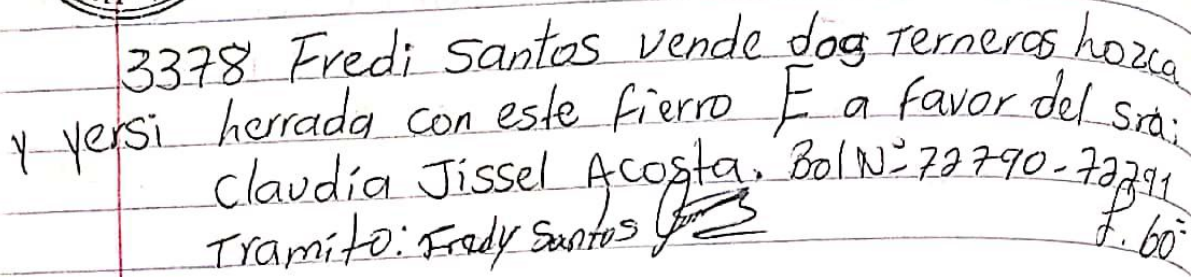 3378 Fredi Santos vende dos Terneras hozca
y yersi herrada con este fierro E a favor del sra:
Claudia Jissel Acosta. Bol Nº 72790-72791
Tramito: Fredy Santos
f. 60=